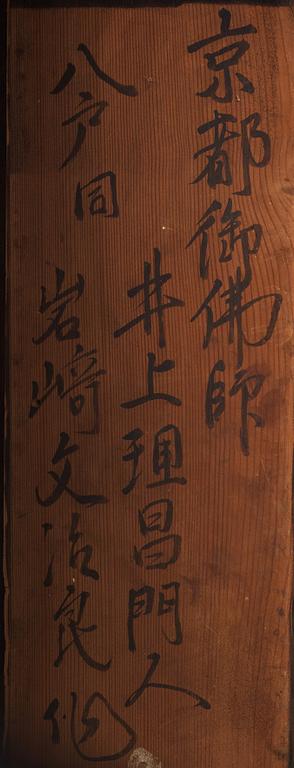 京都御佛師
井上理昌門人
八戸同 岩﨑文治良作